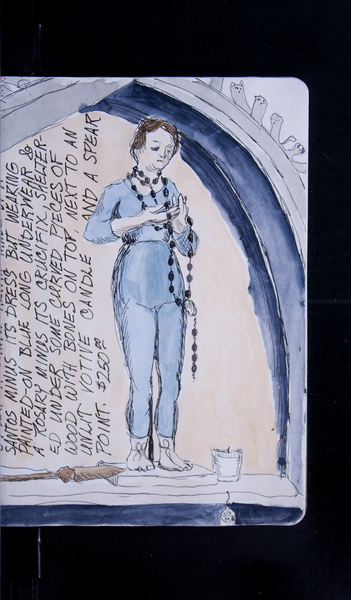 SANTOS MINUS ITS DRESS BUT WEARING
PAINTED-ON BLUE LONG UNDERWEAR &
A ROSARY MINUS ITS CRUCIFIX. SHELTER-
ED UNDER SOME CARVED PIECES OF
WOOD WITH BONES ON TOP NEXT TO AN
UNLIT VOTIVE CANDLE AND A SPEAR
POINT. $1250.00